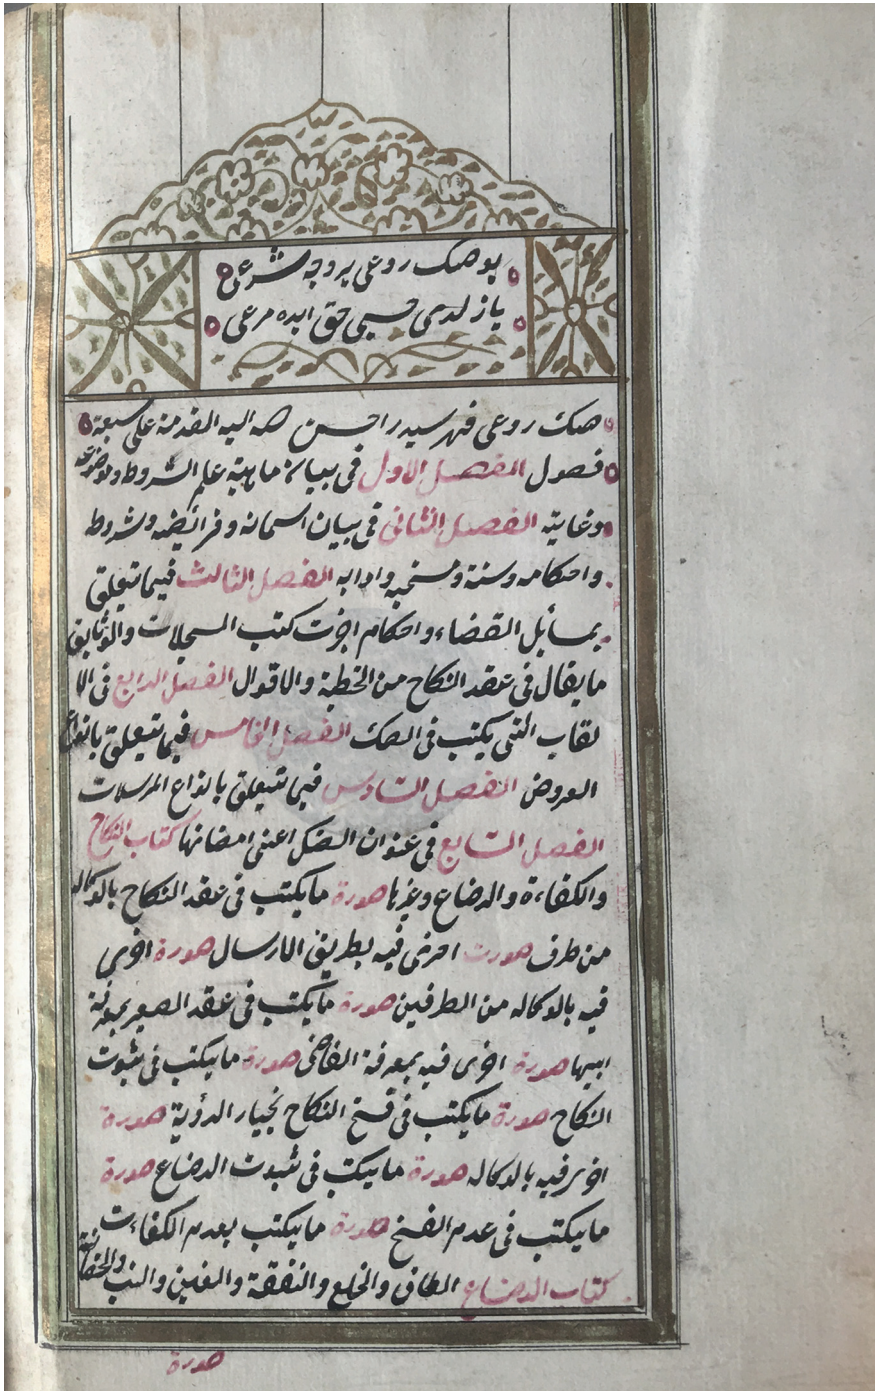 بو صك روعی بر وجه شرعی
یازلدی حق ایده مرعی
صك روعی فهرسیدر المقدمة علی سبعة
فصول الفصل الاول فی بیان ماهیة علم الشروط وموضوعه
وغایته الفصل الثانی فی بیان اسمائه وفرائضه وشروط
واحكامه وسننه ومستحبه وادابه الفصل الثالث فیما یتعلق
بمسائل القضاء واحكام اجرت كتب السجلات والوثایق
ما یقال فی عقد النكاح من الخطبة والاقوال الفصل الرابع فی الا
لقاب التی یكتب فی الصك الفصل الخامس فیما یتعلق بانواع
العروض الفصل السادس فیما یتعلق بانواع المرسلات
الفصل السابع فی عنوان الصكل اعنی امضائها كتاب النكاح
والكفاءة والرضاع وغیرها صورة ما یكتب فی عقد النكاح بالوكاله
من طرف صورت اخری فیه بطریق الارسال صورة اخری
فیه بالوكاله من الطرفین صورة ما یكتب فی عقد الصغیر بمعرفة
ابیها صورة اخری فیه بمعرفة القاضی صورة ما یكتب فی ثبوت
النكاح صورة ما یكتب فی فسخ النكاح بخیار الرؤیة صورة
اخری فیه بالوكاله صورة ما یكتب فی ثبوت الرضاع صورة
ما یكتب فی عدم الفسخ صورة ما یكتب بعدم الكفاءت
كتاب الرضاع الطلاق والخلع والنفقة والعنین والنسب والحضانة
صورة